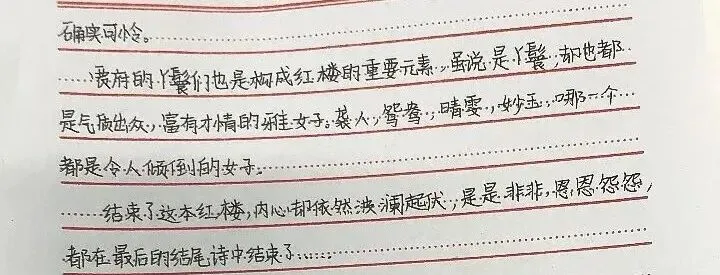 确实可怜。
贾府的丫鬟们也是构成红楼的重要元素,虽说是丫鬟,却也都
是气质出众,富有才情的雅女子。袭人,鸳鸯,晴雯,妙玉,哪一个
都是令人倾倒的女子。
结束了这本红楼,内心却依然波澜起伏,是是非非,恩恩怨怨,
都在最后的结尾诗中结束了……